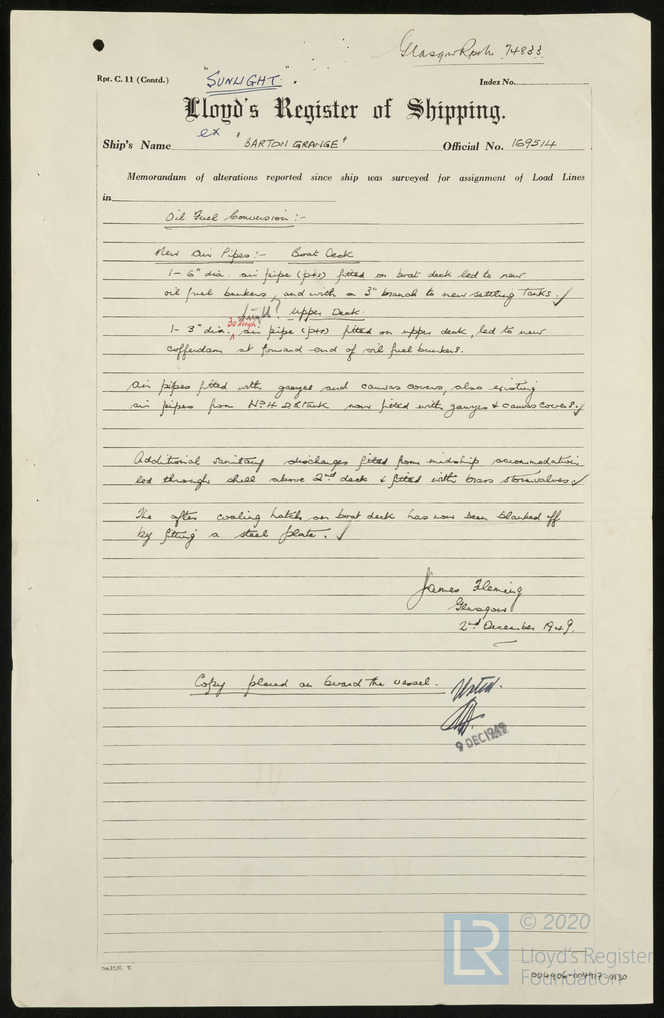 Glasgow Rpt. No. 74833
Rpt. C. 11 (Contd.)
"SUNLIGHT".
Index No.
Lloyd's Register of Shipping.
ex
Ship's Name "BARTON GRANGE" Official No. 169514
Memorandum of alterations reported since ship was surveyed for assignment of Load Lines
in
Oil Fuel Conversion:-
New Air Pipes:- Boat Deck
1- 6" dia. air pipe (p+s) fitted on boat deck led to new
oil fuel bunkers, and with a 3" branch to new settling tanks. ✓
height? Upper Deck.
30" high.
1- 3" dia. air pipe (p+s) fitted on upper deck, led to new
cofferdam at forward end of oil fuel bunkers.
Air pipes fitted with gauzes and canvas covers, also existing
air pipes from No 4 D.B. tank now fitted with gauzes & canvas covers. ✓
Additional sanitary discharges fitted from midship accommodation
led through shell above 2nd deck & fitted with brass storm valves. ✓
The after coaling hatch on boat deck has now been blanked off
by fitting a steel plate. ✓
James Fleming
Glasgow
2nd December 1949.
Copy placed on board the vessel.
Noted.
9 DEC 1949
© 2020
LR
Lloyd's Register
Foundation
004906-004917-0130